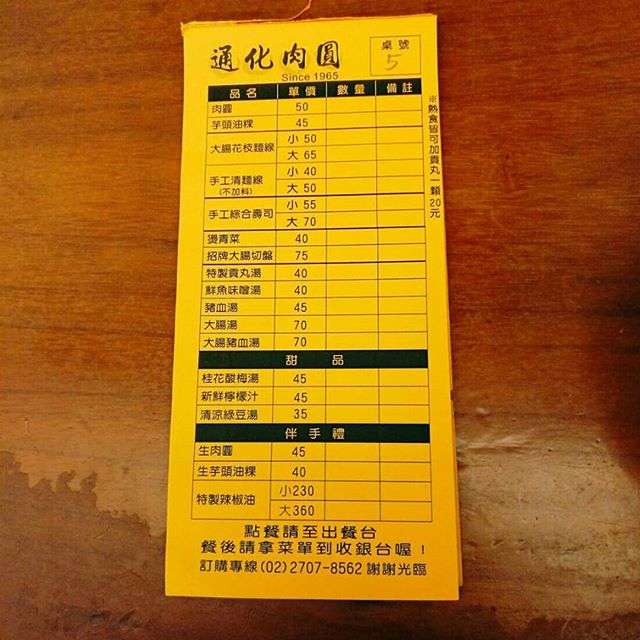 通化肉圓
Since 1965
桌號
5
品名 單價 數量 備註
肉圓 50
芋頭油粿 45
大腸花枝麵線 小 50
大 65
手工清麵線 小 40
(不加料) 大 50
手工綜合壽司 小 55
大 70
燙青菜 40
招牌大腸切盤 75
特製貢丸湯 40
鮮魚味噌湯 40
豬血湯 45
大腸湯 70
大腸豬血湯 70
甜品
桂花酸梅湯 45
新鮮檸檬汁 45
清涼綠豆湯 35
伴手禮
生肉圓 45
生芋頭油粿 40
特製辣椒油 小230
大360
※熱食皆可加貢丸一顆20元
點餐請至出餐台
餐後請拿菜單到收銀台喔！
訂購專線(02)2707-8562 謝謝光臨